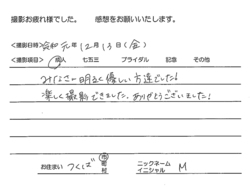 撮影お疲れ様でした。　感想をお願いいたします。
＜撮影日時＞令和元年12月13日（金）
＜撮影項目＞ 成人　七五三　ブライダル　記念　その他
みなさん明るく優しい方達でした！
楽しく撮影できました。ありがとうございました！
お住まい つくば 市 町 村　ニックネーム イニシャル M